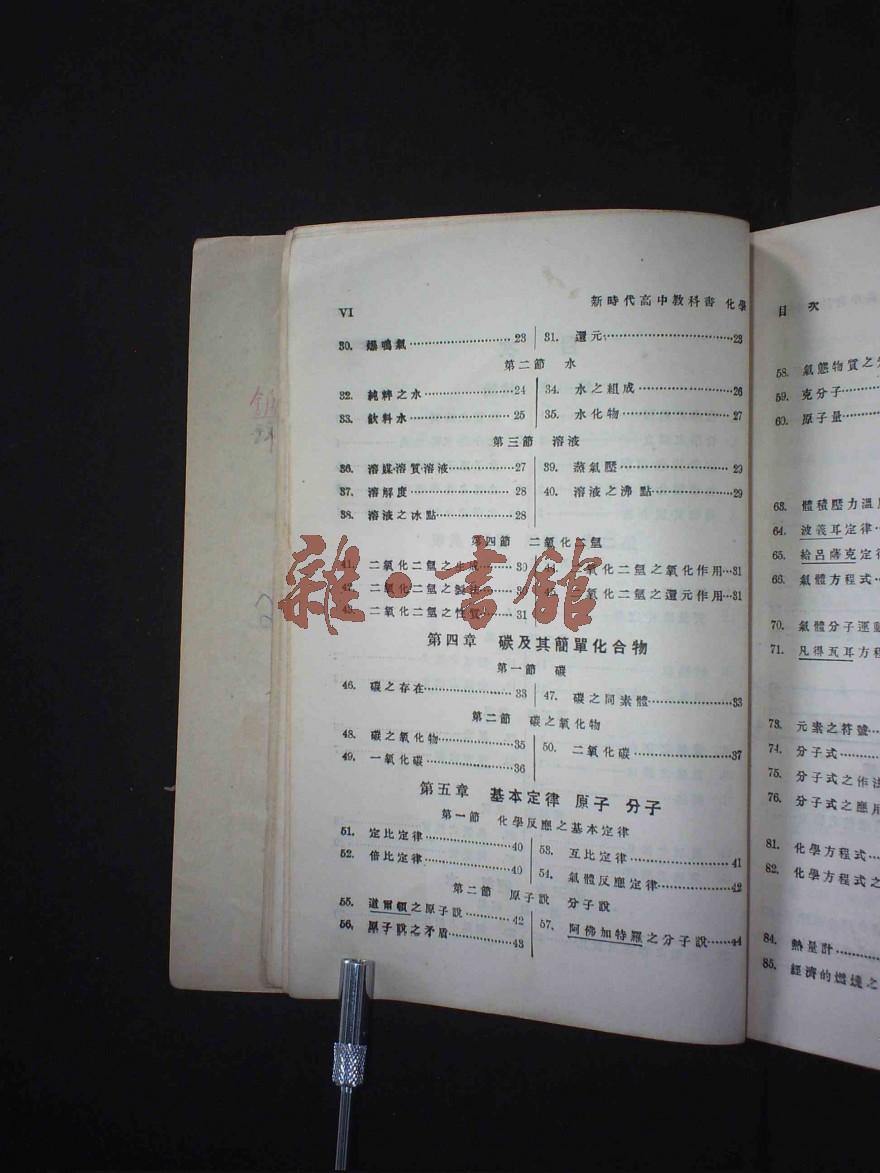 VI
新時代高中教科書 化學
30. 爆鳴氣 23
31. 還元 23
第二節 水
32. 純粹之水 24
34. 水之組成 26
33. 飲料水 25
35. 水化物 27
第三節 溶液
36. 溶媒溶質溶液 27
39. 蒸氣壓 29
37. 溶解度 28
40. 溶液之沸點 29
38. 溶液之冰點 28
第四節 二氧化二氫
41. 二氧化二氫之生成 30
44. 二氧化二氫之氧化作用 31
42. 二氧化二氫之製法 30
45. 二氧化二氫之還元作用 31
43. 二氧化二氫之性質 31
雜·書館
第四章 碳及其簡單化合物
第一節 碳
46. 碳之存在 33
47. 碳之同素體 33
第二節 碳之氧化物
48. 碳之氧化物 35
50. 二氧化碳 37
49. 一氧化碳 36
第五章 基本定律 原子 分子
第一節 化學反應之基本定律
51. 定比定律 40
53. 互比定律 41
52. 倍比定律 40
54. 氣體反應定律 42
第二節 原子說 分子說
55. 道爾頓之原子說 42
57. 阿佛加特羅之分子說 44
56. 原子說之矛盾 43
目 次
58. 氣態物質之
59. 克分子
60. 原子量
63. 體積壓力溫
64. 波義耳定律
65. 給呂薩克定
66. 氣體方程式
70. 氣體分子運
71. 凡得瓦耳方
73. 元素之符號
74. 分子式
75. 分子式之作法
76. 分子式之應用
81. 化學方程式
82. 化學方程式之
84. 熱量計
85. 經濟的燃燒之